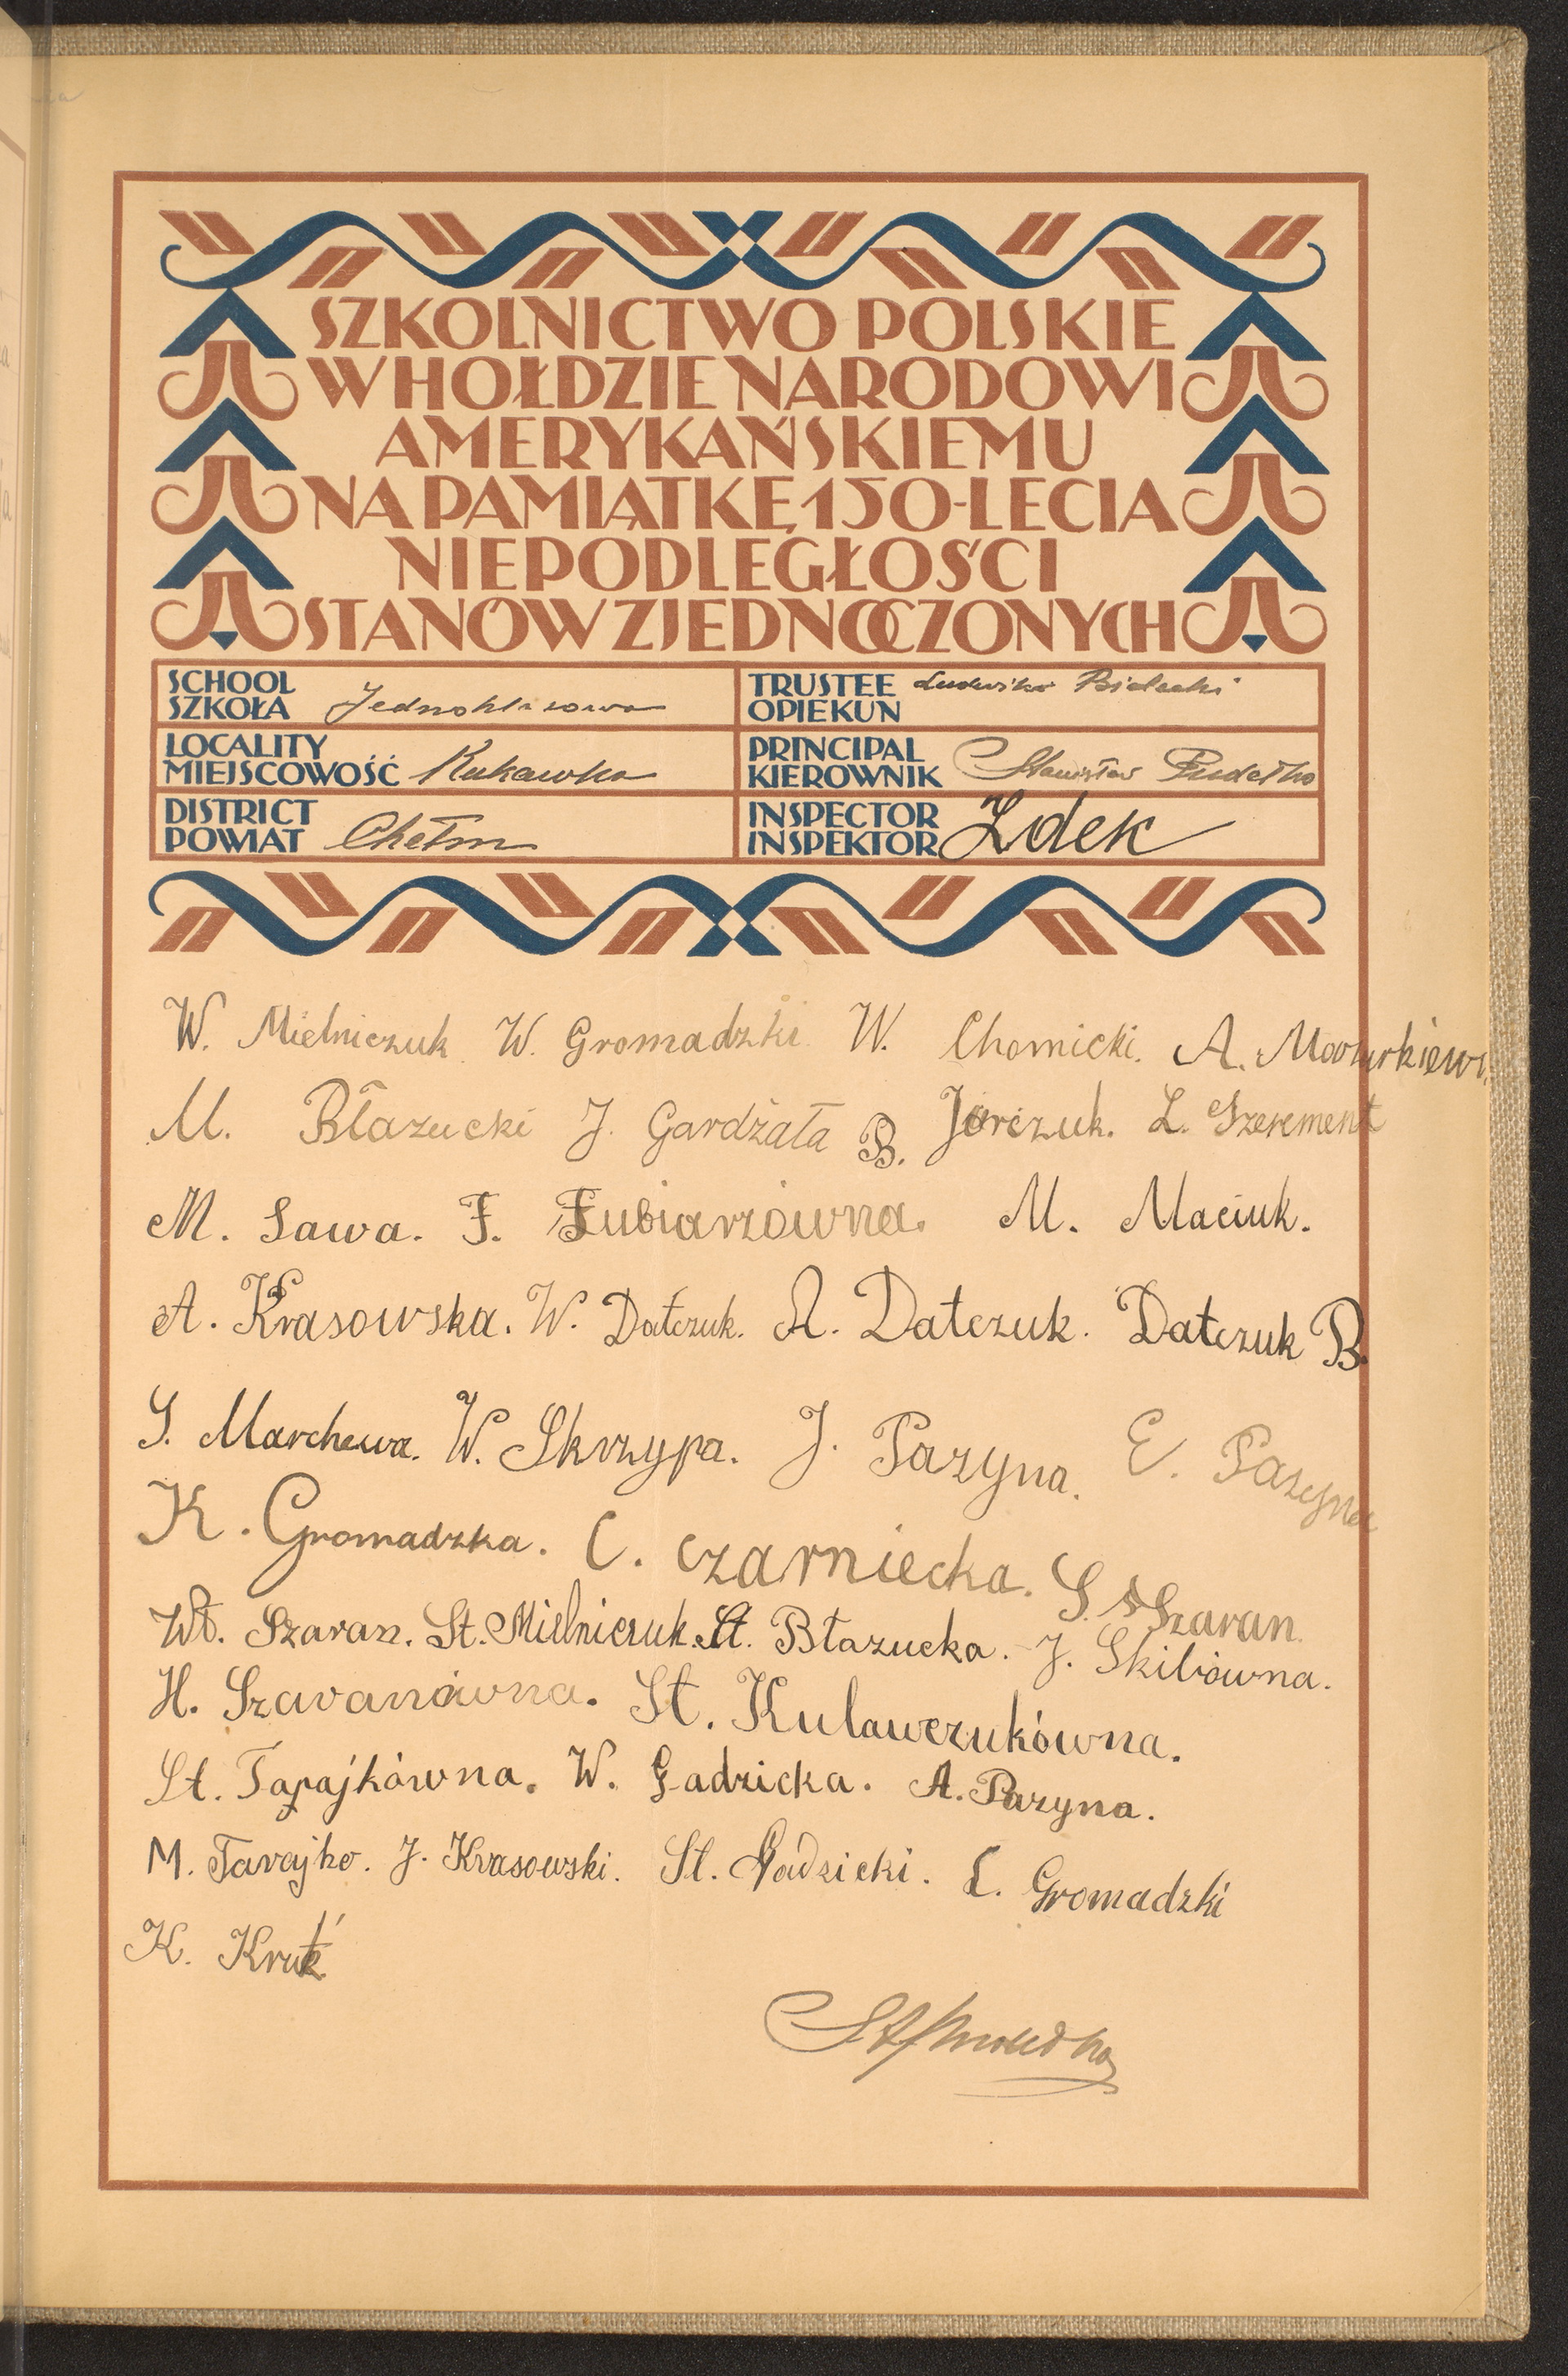 SZKOLNICTWO POLSKIE
W HOŁDZIE NARODOWI
AMERYKAŃSKIEMU
NA PAMIĄTKĘ 150-LECIA
NIEPODLEGŁOŚCI
STANÓW ZJEDNOCZONYCH
SCHOOL
SZKOŁA Jednoklasowa
TRUSTEE Ludwika Bielecki
OPIEKUN
LOCALITY
MIEJSCOWOŚĆ Kukawka
PRINCIPAL
KIEROWNIK Stanisław Pudełko
DISTRICT
POWIAT Chełm
INSPECTOR
INSPEKTOR Zdek
W. Mielniczuk. W. Gromadzki. W. Chomicki. A. Mazurkiewi.
M. Błazucki J. Gardżała B. Jarczuk. L. Szerement
M. Sawa. F. M. Maciuk.
A. Krasowska. W. Datczuk. A. Datczuk. Datczuk B.
S. Marchewa. W. Skrzypa. J. Pazyna. E. Pazyna
K. Gromadzka. C. Czarniecka. S. Szaran.
Wł. Szaran. St. Mielniczuk. St. Błazucka. J. Skibówna.
H. Szaranówna. St. Kulawczukówna.
St. Tarajkówna. W. Gadzicka. A. Pazyna.
M. Tarajko. J. Krasowski. St. Gadzicki. L. Gromadzki
K. Kruk